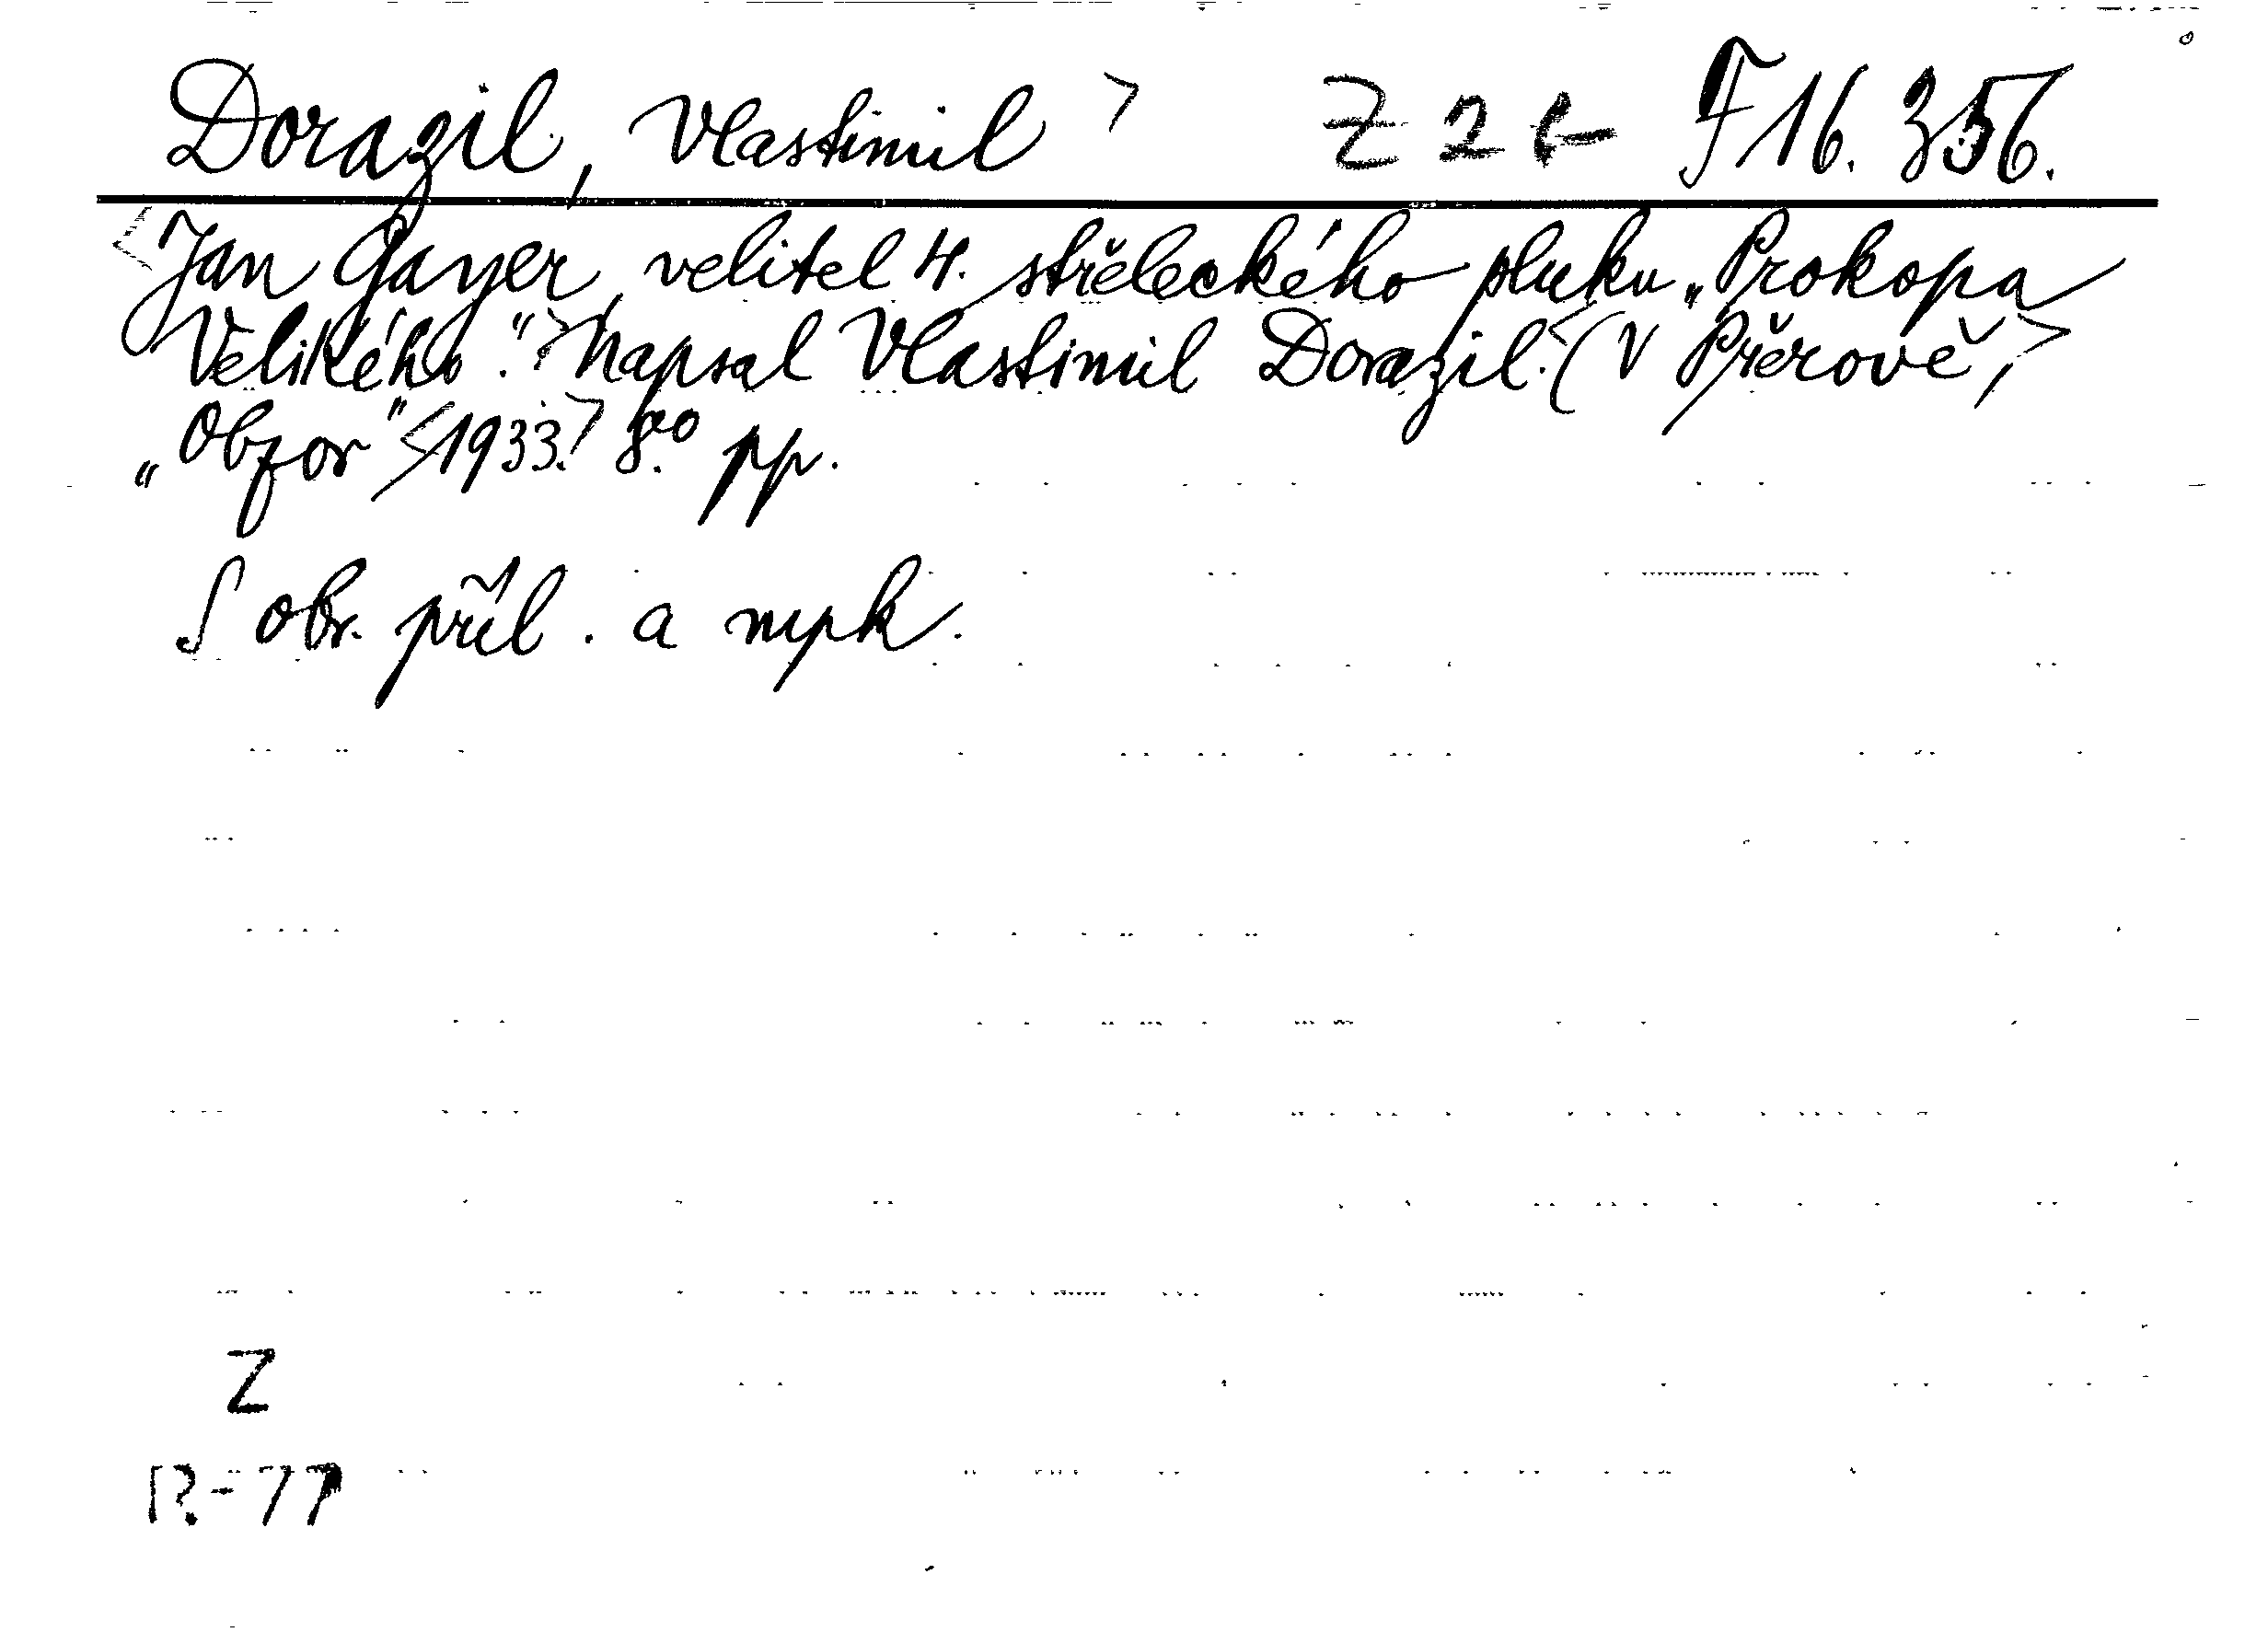 Dorazil, Vlastimil > Z 2 F 16.356.
<Jan Gayer, velitel 4. střeleckého pluku „Prokopa
Velikého.“> Napsal Vlastimil Dorazil. <(V Přerově,>
„Obzor“ <1933.> 8.° pp.
S obr. příl. a mpk.
Z
R-77